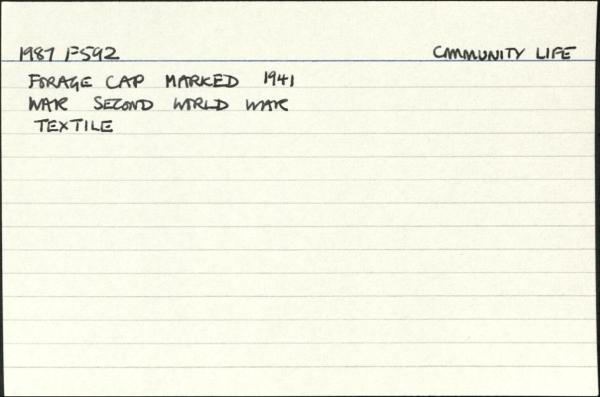 1987 F592 COMMUNITY LIFE
FORAGE CAP MARKED 1941
WAR SECOND WORLD WAR
TEXTILE